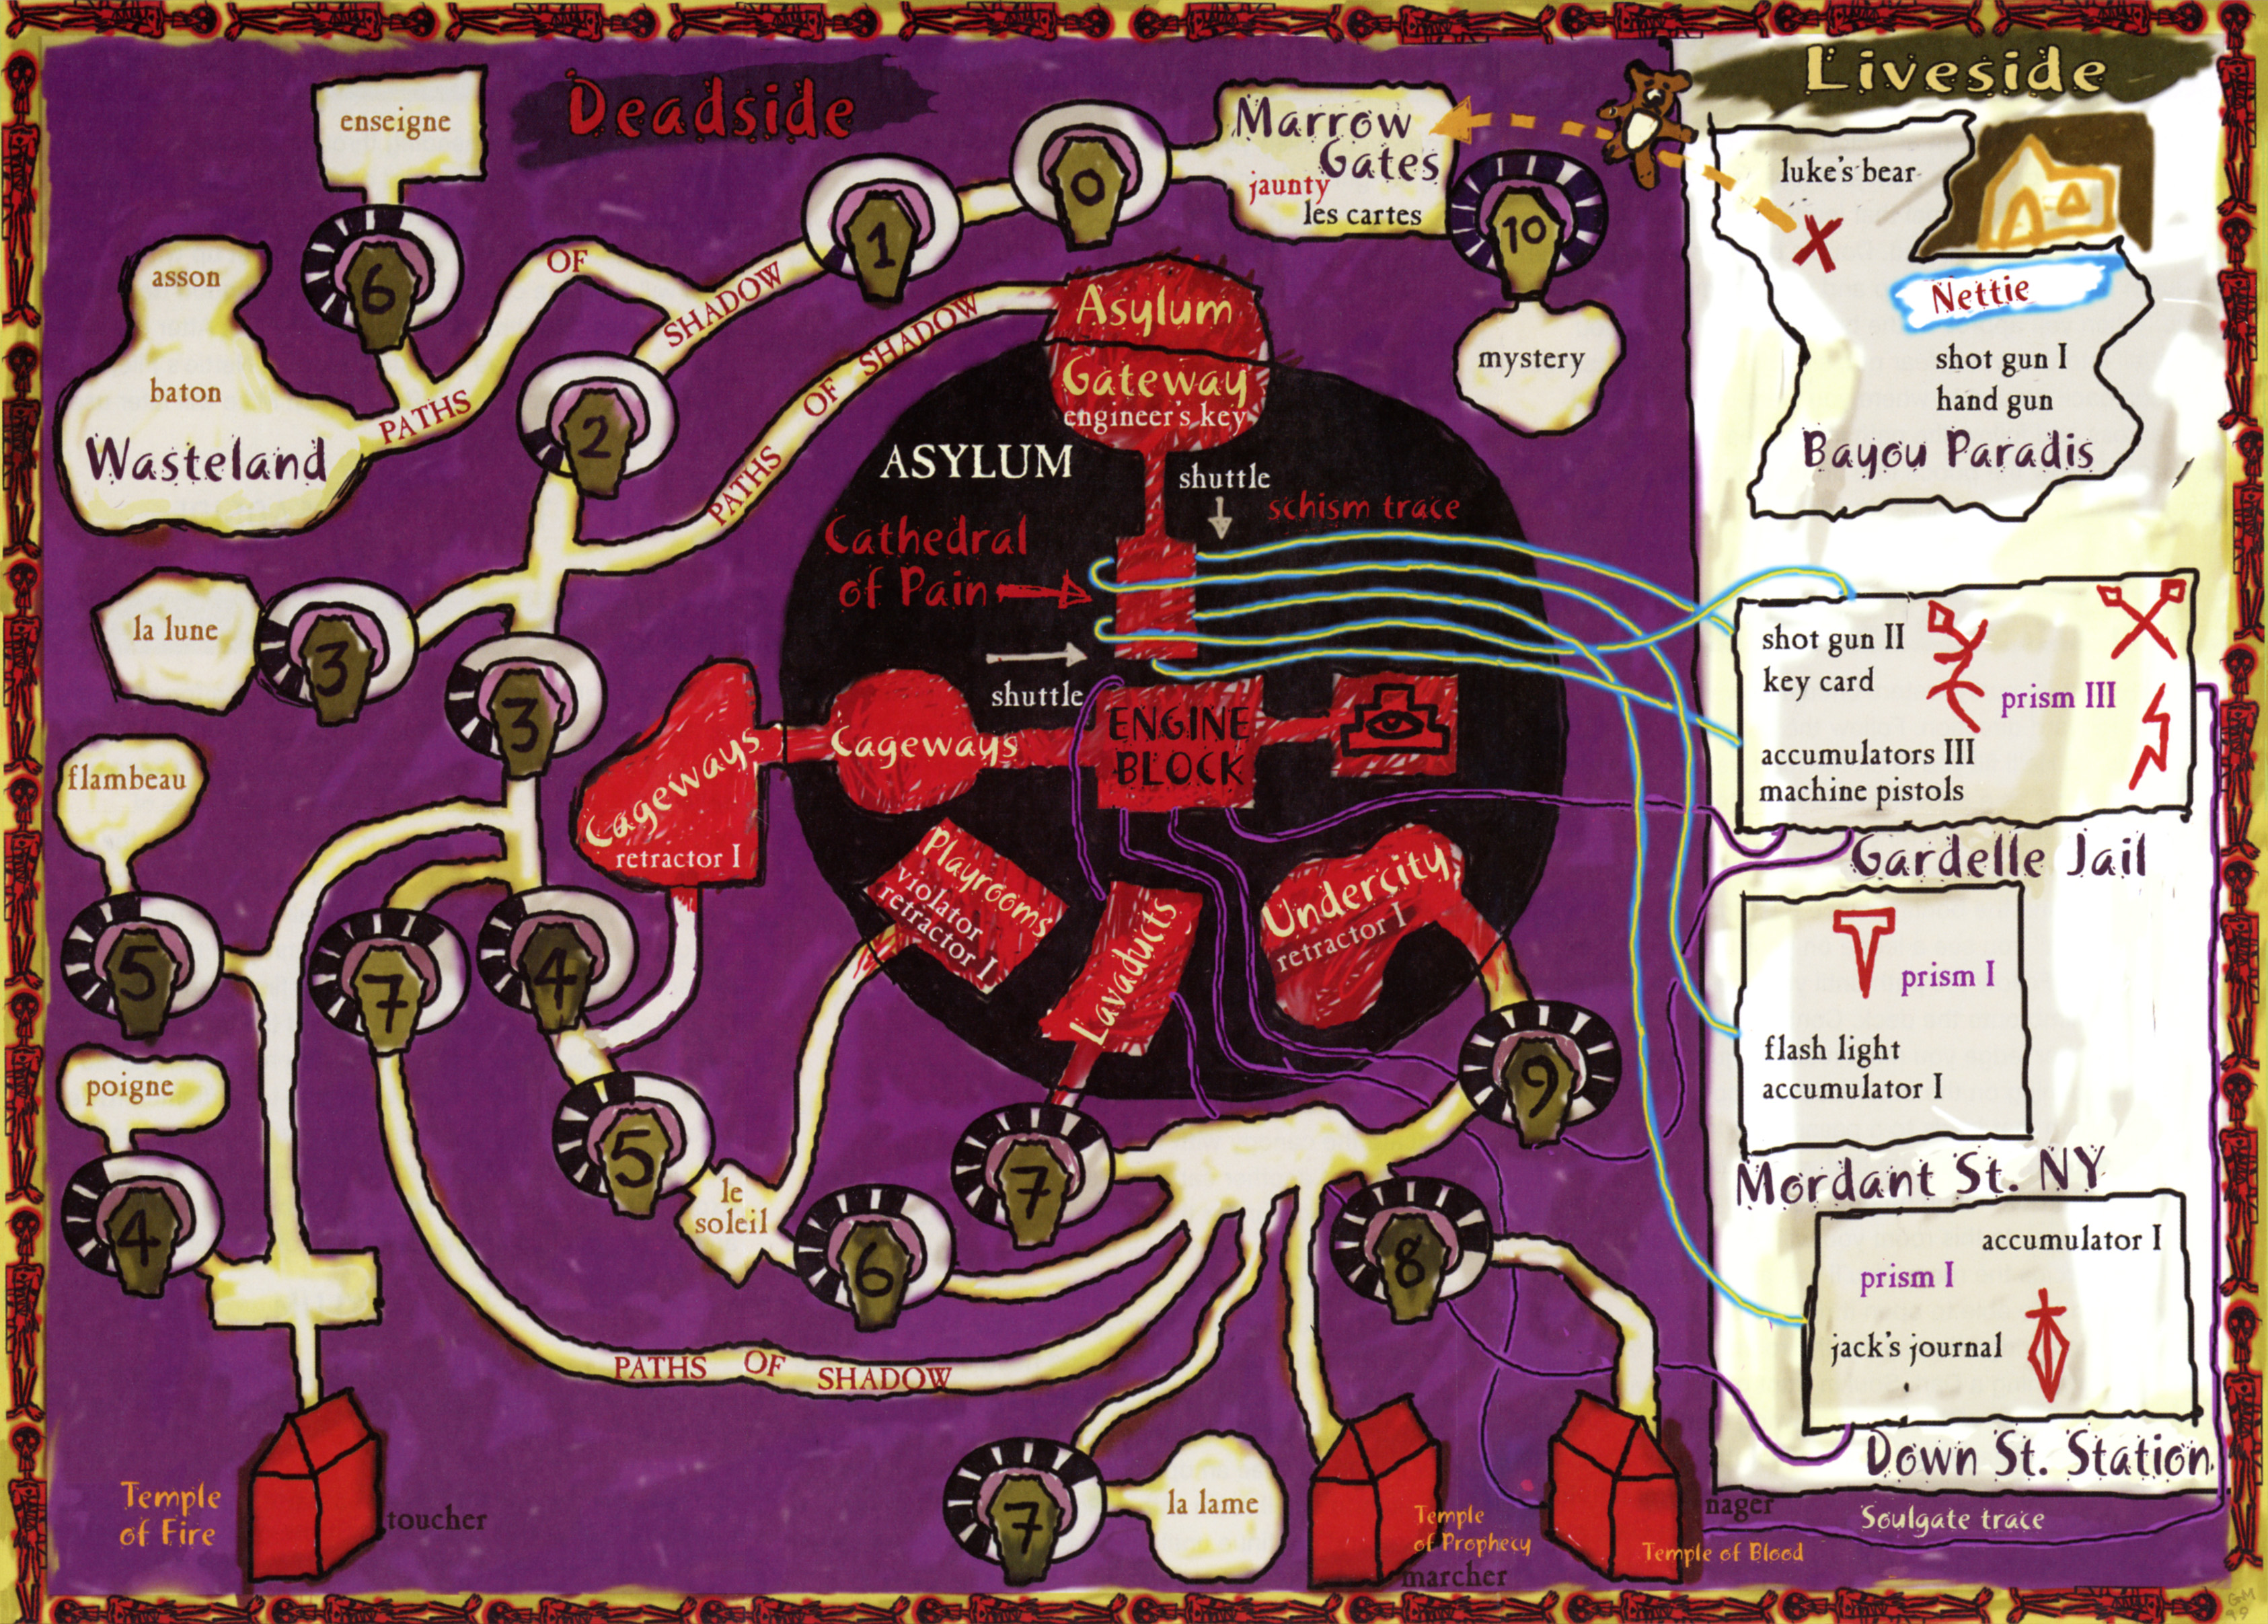 Deadside
Liveside
enseigne
6
1
0
Marrow
Gates
jaunty
les cartes
10
mystery
luke's bear
X
Nettie
shot gun I
hand gun
Bayou Paradis
asson
baton
Wasteland
PATHS
OF
SHADOW
2
PATHS
OF
SHADOW
Asylum
Gateway
engineer's key
ASYLUM
shuttle
schism trace
Cathedral
of Pain
shuttle
la lune
3
3
Cageways
retractor I
Cageways
ENGINE
BLOCK
shot gun II
key card
prism III
accumulators III
machine pistols
Gardelle Jail
flambeau
5
7
4
Playrooms
violator
retractor I
Lavaducts
Undercity
retractor I
9
prism I
flash light
accumulator I
Mordant St. NY
poigne
4
5
le
soleil
6
7
8
accumulator I
prism I
jack's journal
Down St. Station
PATHS
OF
SHADOW
Temple
of Fire
toucher
7
la lame
Temple
of Prophecy
marcher
nager
Temple of Blood
Soulgate trace